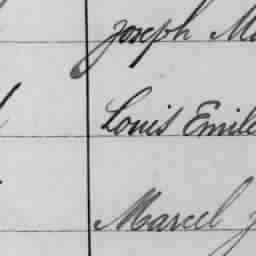 Joseph
Louis Emile
Marcel